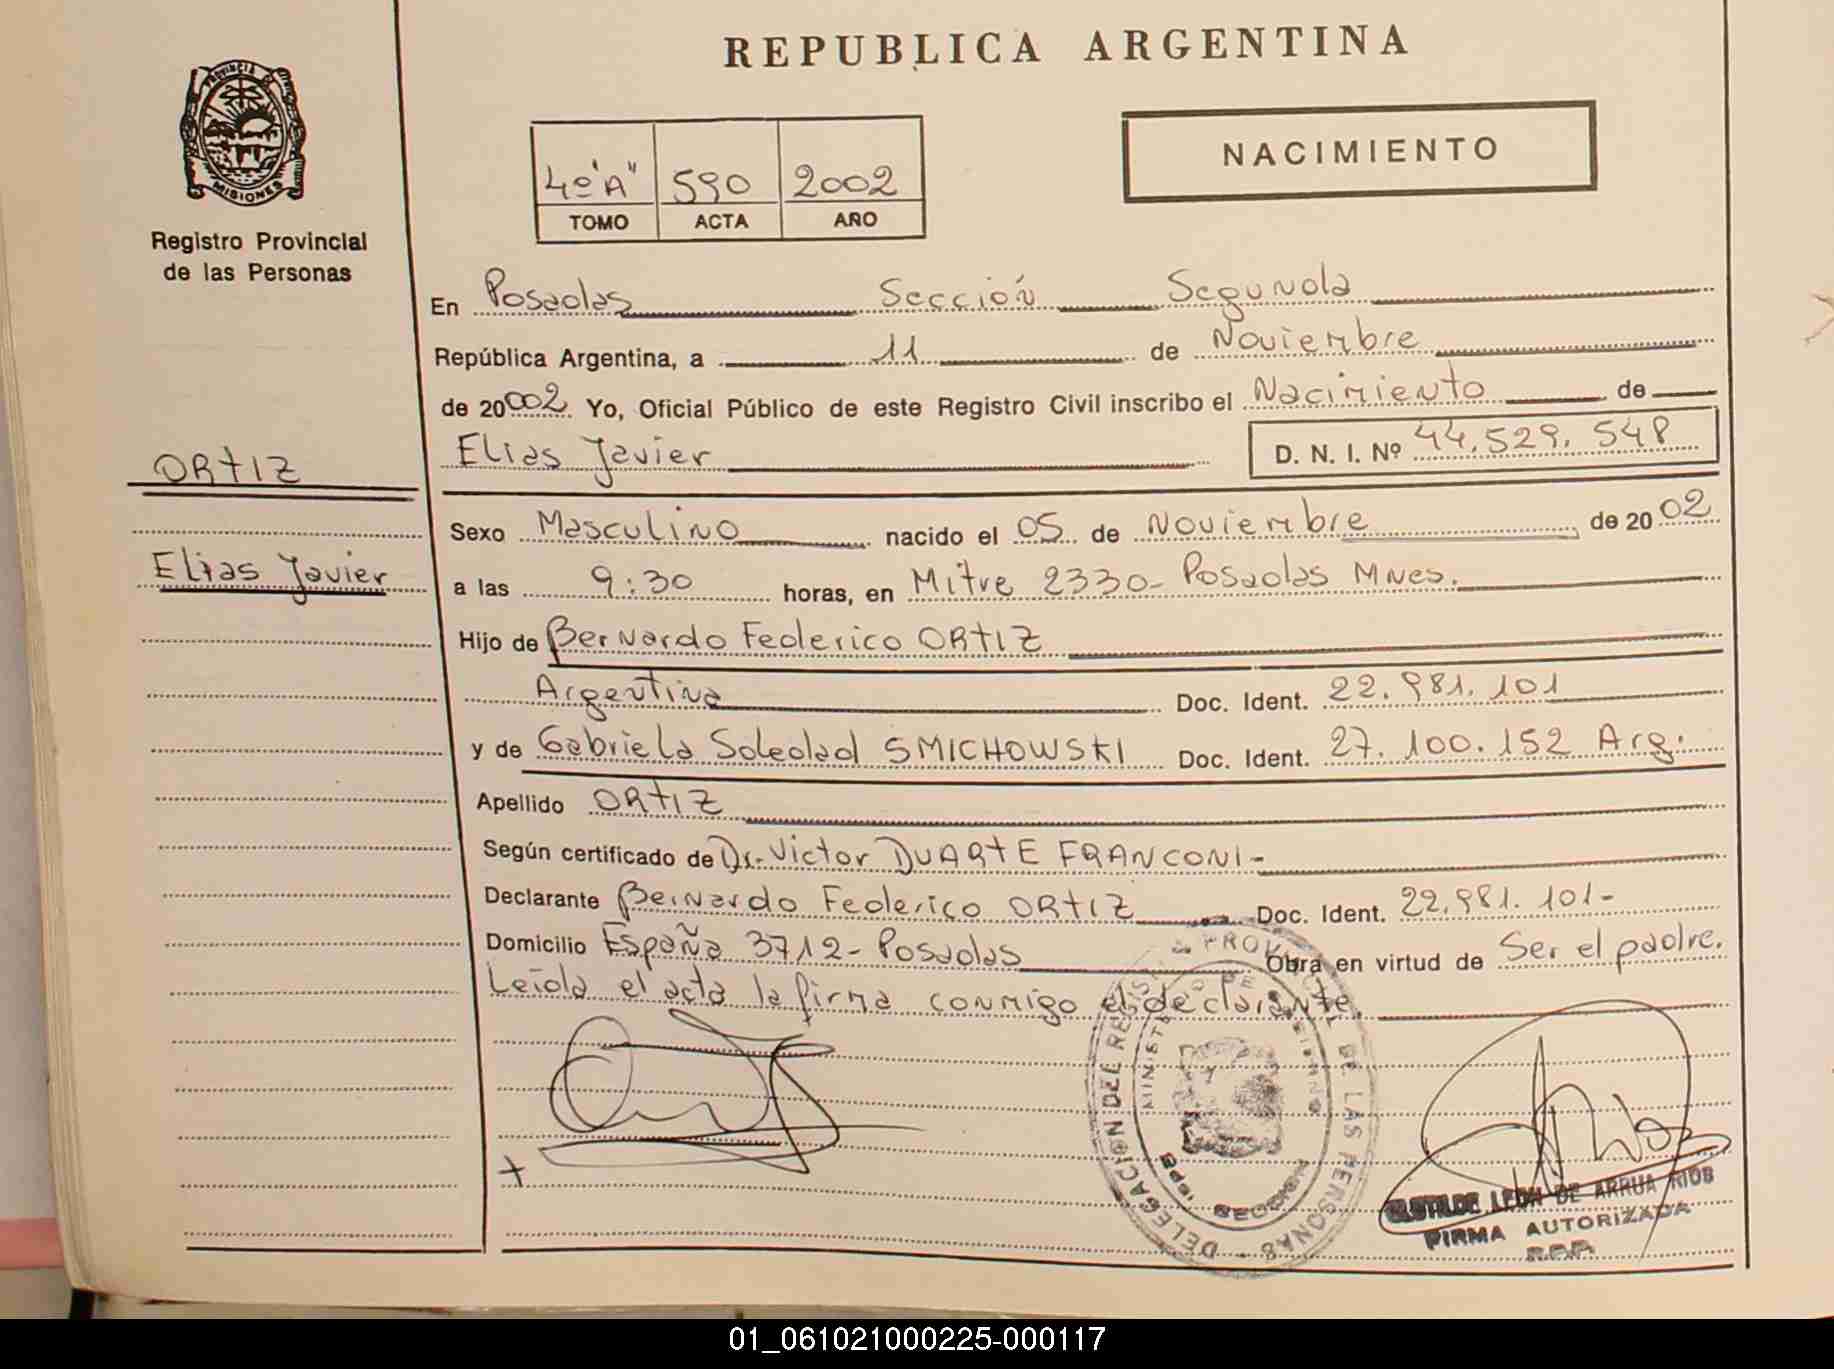 REPUBLICA ARGENTINA
PROVINCIA DE
MISIONES
Registro Provincial
de las Personas
NACIMIENTO
4º "A" 590 2002
TOMO ACTA AÑO
En Posadas Sección Segunda
República Argentina, a 11 de Noviembre
de 20002 Yo, Oficial Público de este Registro Civil inscribo el Nacimiento de
Elias Javier D. N. I. Nº 44.529.548
ORTIZ
Elias Javier
Sexo Masculino nacido el 05 de Noviembre de 2002
a las 9:30 horas, en Mitre 2330- Posadas Mnes.
Hijo de Bernardo Federico ORTIZ
Argentina Doc. Ident. 22.981.101
y de Gabriela Soledad SMICHOWSKI Doc. Ident. 27.100.152 Arg.
Apellido ORTIZ
Según certificado de Dr. Victor DUARTE FRANCONI-
Declarante Bernardo Federico ORTIZ Doc. Ident. 22.981.101-
Domicilio España 3712- Posadas Obra en virtud de Ser el padre.
Leída el acta la firma conmigo el declarante.
DELEGACION DEL REGISTRO PROVINCIAL DE LAS PERSONAS
MINISTERIO DE GOBIERNO
SECCION
CLOTILDE LEON DE ARRUA RIOS
FIRMA AUTORIZADA
R.P.P.
01_061021000225-000117